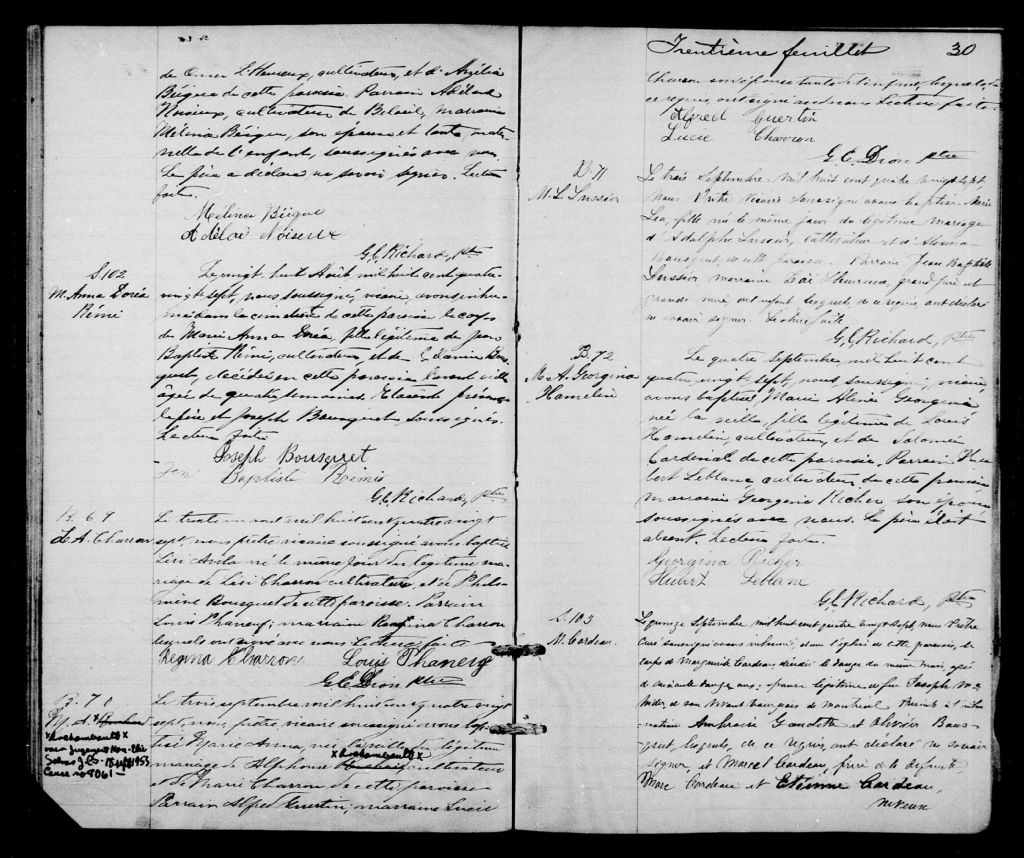 de Omer L'Heureux, cultivateur, et d'Azilia
Bieque de cette paroisse. Parrain Adélard
Noiseux, cultivateur de Beloeil, marraine
Mélina Bieque, son épouse et tante mater-
nelle de l'enfant, soussignés avec nous.
Le père a déclaré ne savoir signer. Lecture
faite.
Mélina Bieque
Noiseux
G.C. Richard, Ptre
S. 102
M. Anna Doréa
Rémi
Le vingt huit Août mil huit cent quatre
vingt sept, nous soussigné, vicaire, avons inhu-
mé dans le cimetière de cette paroisse le corps
de Marie Anna Doréa, fille légitime de Jean
Baptiste Rémi, cultivateur, et de Bous-
quet, décédée en cette paroisse l'avant veille
âgée de quatre semaines. Etaient présents
le père et Joseph Bousquet soussignés.
Lecture faite
Joseph Bousquet
Jean Baptiste Rémis
G.C. Richard, Ptre
B. 69
L. A. Charron
Le trente août mil huit cent quatre vingt
sept, nous prêtre vicaire soussigné avons baptisé
né le même jour du légitime ma-
riage de Charron cultivateur, et de Philo-
mène Bousquet de cette paroisse. Parrain
Louis Phaneuf; marraine Regina Charron
lesquels ont signé avec nous. Lecture faite
Regina Charron Louis Phaneuf
G.E. Dion Ptre
B. 70
M. A.
x Archambault x
voir jugement Hon. Elie
Salvas J.C.S. 1953
Cause no 8061
Le trois septembre mil huit cent quatre vingt
sept, nous, prêtre vicaire soussigné avons bap-
tisé Marie Anna, née la veille du légitime
x Archambault x
mariage de Alphonse cultivateur
et de Marie Charron de cette paroisse
Parrain Alfred Guertin, marraine Lucie
Trentième feuillet 30
Charron son épouse tante de l'enfant, lesquels, de
ce requis, ont signé avec nous. Lecture faite.
Alfred Guertin
Lucie Charron
G.E. Dion Ptre
B. 71
M. L. Lussier
Le trois Septembre mil huit cent quatre vingt sept,
Nous Prêtre Vicaire soussigné avons baptisé Marie
Lea, fille née le même jour du légitime mariage
d'Adolphe Lussier, cultivateur et d'
Bousquet, de cette paroisse. Parrain Jean Baptiste
Lussier marraine L'heureux, grand père et
grande mère de l'enfant lesquels de ce requis ont déclaré
ne savoir signer. Lecture faite
G.C. Richard, Ptre
B. 72
M. A. Georgina
Hamelin
Le quatre septembre, mil huit cent
quatre vingt sept, nous soussigné, vicaire
avons baptisé Marie Georgina
née la veille, fille légitime de Louis
Hamelin, cultivateur, et de Salomé
Cardinal de cette paroisse. Parrain Hu-
bert Leblanc cultivateur de cette paroisse
marraine Georgina Richer son épouse
soussignés avec nous. Le père était
absent. Lecture faite.
Georgina Richer
Hubert Leblanc
G.C. Richard, Ptre
S. 103
M. Cardeau
Le quinze Septembre mil huit cent quatre vingt sept, nous Prêtre
Curé soussigné avons inhumé, dans l'église de cette paroisse, le
corps de Marguerite Cardeau décédée le du même mois, âgée
de ans; épouse légitime de feu Joseph
de son vivant bourgeois de Montréal. Présents à l'inhu-
mation Ambroise Gaudette et Olivier Bous-
quet, lesquels, de ce requis, ont déclaré ne savoir
signer, et Marcel Cardeau, frère de la défunte
Marc Cardeau et Etienne Cardeau,
neveux